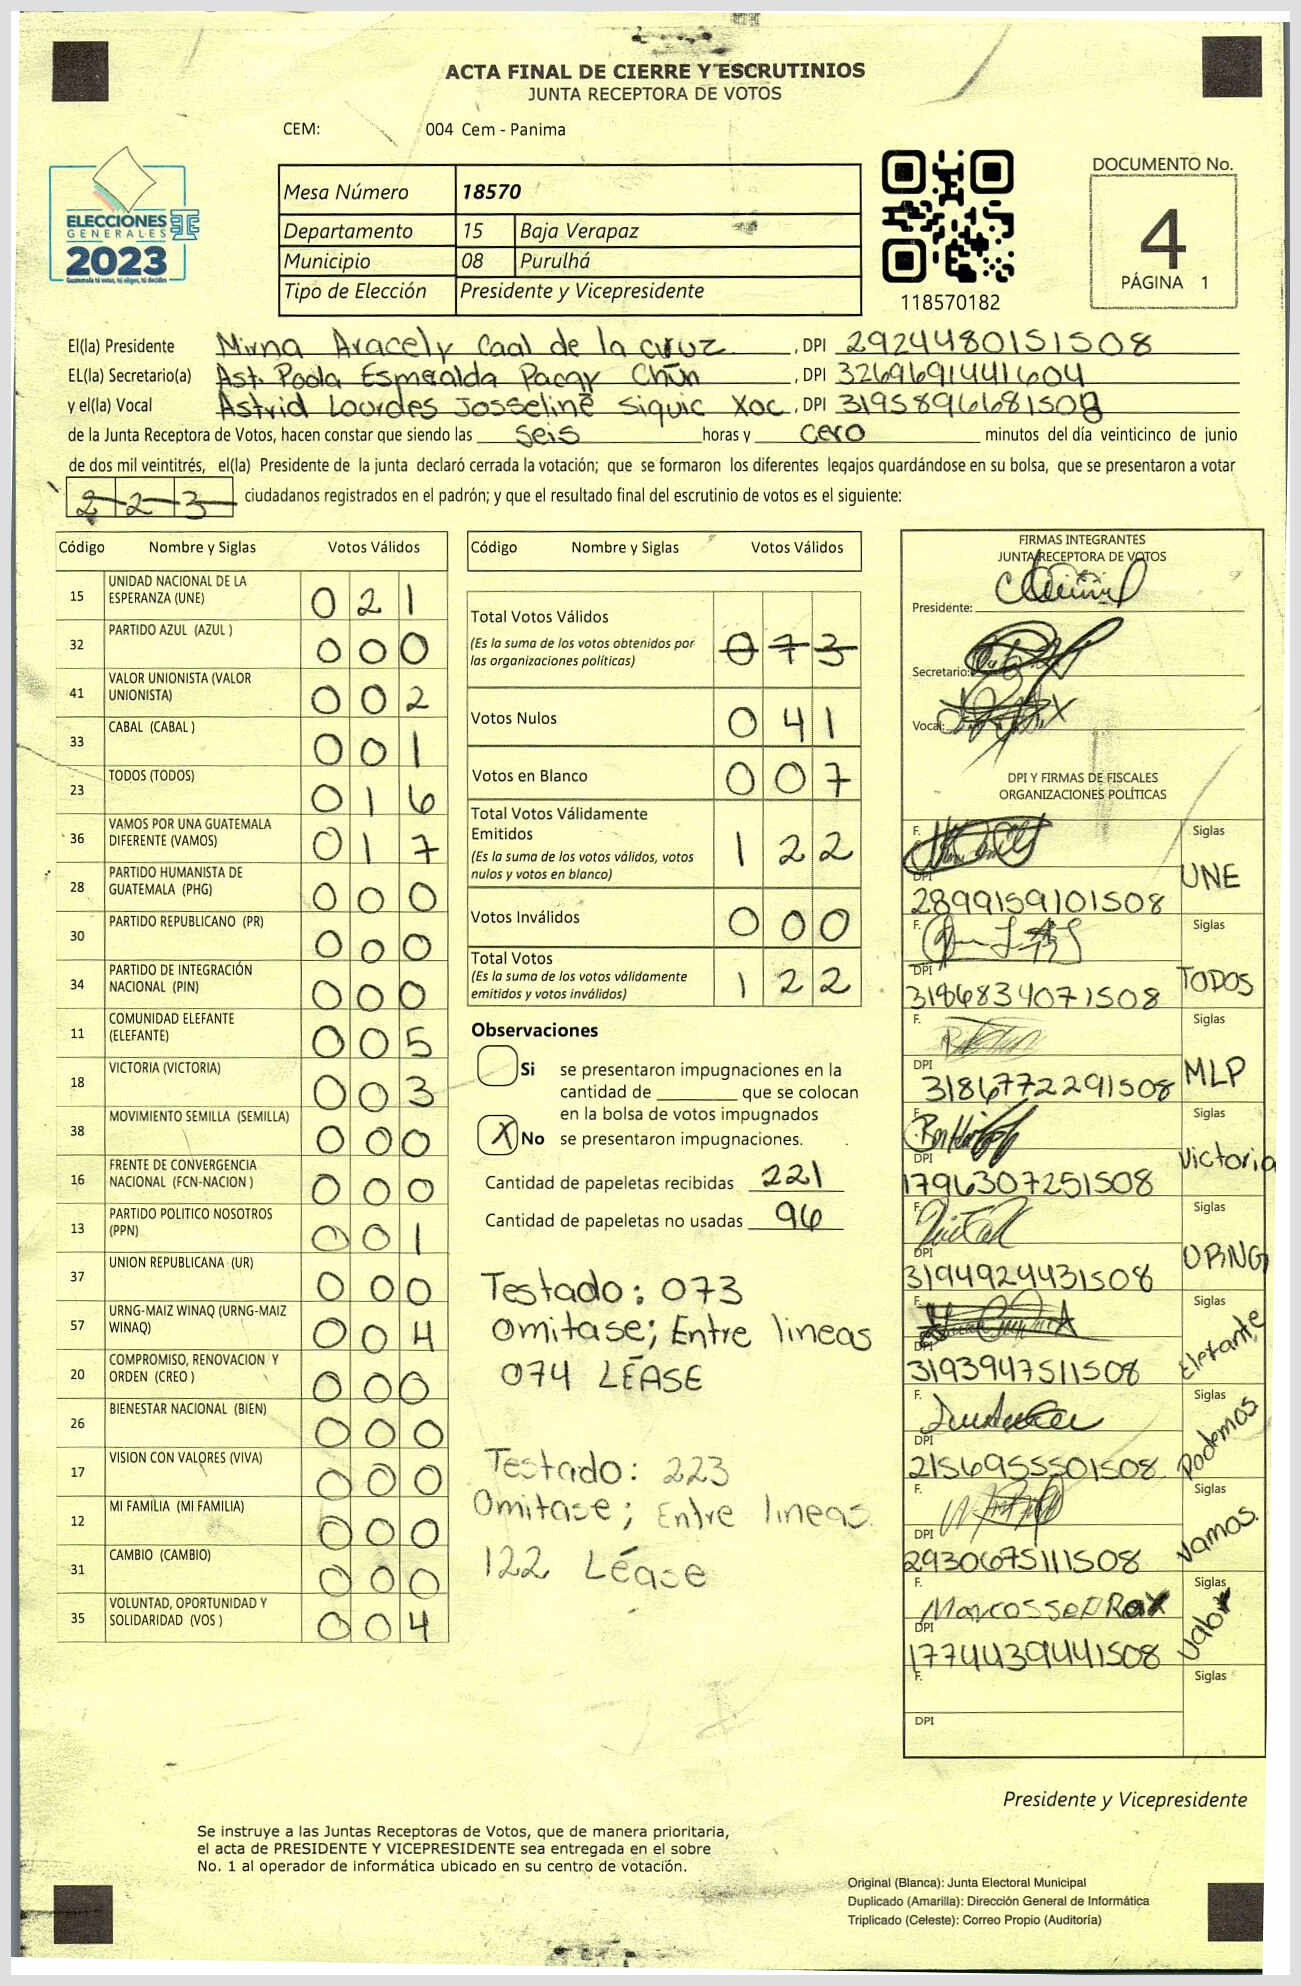 ACTA FINAL DE CIERRE Y ESCRUTINIOS
JUNTA RECEPTORA DE VOTOS
CEM: 004 Cem - Panima
ELECCIONES
GENERALES
2023
Guatemala tú votas, tú eliges, tú decides
Mesa Número 18570
Departamento 15 Baja Verapaz
Municipio 08 Purulhá
Tipo de Elección Presidente y Vicepresidente
118570182
DOCUMENTO No.
4
PÁGINA 1
El(la) Presidente Mirna Aracely Caal de la cruz, DPI 2924480151508
EL(la) Secretario(a) Ast. Paola Esmeralda Pacay Chún, DPI 3269691441604
y el(la) Vocal Astrid Lourdes Josseline Siquic Xoc, DPI 3195896681508
de la Junta Receptora de Votos, hacen constar que siendo las seis horas y cero minutos del día veinticinco de junio
de dos mil veintitrés, el(la) Presidente de la junta declaró cerrada la votación; que se formaron los diferentes legajos guardándose en su bolsa, que se presentaron a votar
223 ciudadanos registrados en el padrón; y que el resultado final del escrutinio de votos es el siguiente:
Código Nombre y Siglas Votos Válidos
15 UNIDAD NACIONAL DE LA ESPERANZA (UNE) 021
32 PARTIDO AZUL (AZUL ) 000
41 VALOR UNIONISTA (VALOR UNIONISTA) 002
33 CABAL (CABAL ) 001
23 TODOS (TODOS) 016
36 VAMOS POR UNA GUATEMALA DIFERENTE (VAMOS) 017
28 PARTIDO HUMANISTA DE GUATEMALA (PHG) 000
30 PARTIDO REPUBLICANO (PR) 000
34 PARTIDO DE INTEGRACIÓN NACIONAL (PIN) 000
11 COMUNIDAD ELEFANTE (ELEFANTE) 005
18 VICTORIA (VICTORIA) 003
38 MOVIMIENTO SEMILLA (SEMILLA) 000
16 FRENTE DE CONVERGENCIA NACIONAL (FCN-NACION ) 000
13 PARTIDO POLITICO NOSOTROS (PPN) 001
37 UNION REPUBLICANA (UR) 000
57 URNG-MAIZ WINAQ (URNG-MAIZ WINAQ) 004
20 COMPROMISO, RENOVACION Y ORDEN (CREO ) 000
26 BIENESTAR NACIONAL (BIEN) 000
17 VISION CON VALORES (VIVA) 000
12 MI FAMILIA (MI FAMILIA) 000
31 CAMBIO (CAMBIO) 000
35 VOLUNTAD, OPORTUNIDAD Y SOLIDARIDAD (VOS ) 004
Código Nombre y Siglas Votos Válidos
Total Votos Válidos
(Es la suma de los votos obtenidos por las organizaciones políticas) 073
Votos Nulos 041
Votos en Blanco 007
Total Votos Válidamente Emitidos
(Es la suma de los votos válidos, votos nulos y votos en blanco) 122
Votos Inválidos 000
Total Votos
(Es la suma de los votos válidamente emitidos y votos inválidos) 122
Observaciones
Si se presentaron impugnaciones en la
cantidad de ________ que se colocan
en la bolsa de votos impugnados
X No se presentaron impugnaciones.
Cantidad de papeletas recibidas 221
Cantidad de papeletas no usadas 96
Testado: 073
omitase; Entre lineas
074 LÉASE
Testado: 223
Omitase; Entre lineas
122 Léase
FIRMAS INTEGRANTES
JUNTA RECEPTORA DE VOTOS
Presidente:
Secretario:
Vocal:
DPI Y FIRMAS DE FISCALES
ORGANIZACIONES POLÍTICAS
F. Siglas
DPI 2899159101508 UNE
F. Siglas
DPI 3186834071508 TODOS
F. Siglas
DPI 3186772291508 MLP
F. Siglas
DPI 1796307251508 Victoria
F. Siglas
DPI 3194924431508 URNG
F. Siglas
DPI 3193947511508 Elefante
F. Siglas
DPI 2156955501508 Podemos
F. Siglas
DPI 2930675111508 Vamos.
F. Siglas
DPI 1774439441508 Valor
F. Siglas
DPI
Presidente y Vicepresidente
Se instruye a las Juntas Receptoras de Votos, que de manera prioritaria,
el acta de PRESIDENTE Y VICEPRESIDENTE sea entregada en el sobre
No. 1 al operador de informática ubicado en su centro de votación.
Original (Blanca): Junta Electoral Municipal
Duplicado (Amarilla): Dirección General de Informática
Triplicado (Celeste): Correo Propio (Auditoría)